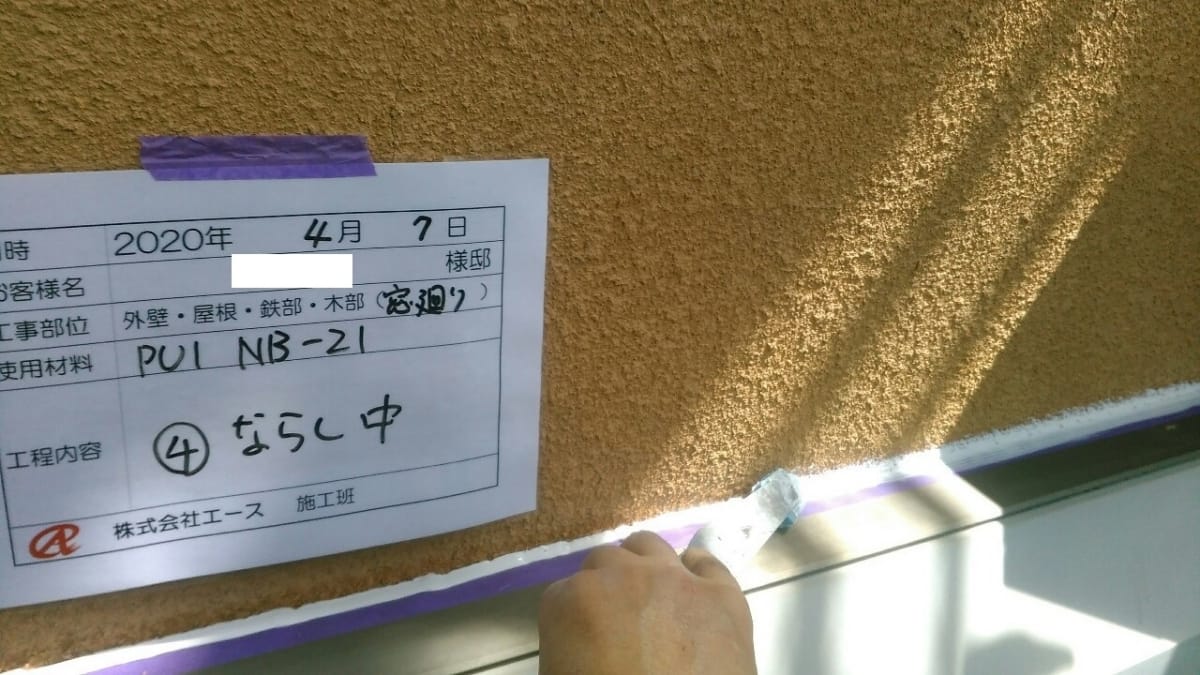 時 2020年 4月 7日
お客様名 様邸
工事部位 外壁・屋根・鉄部・木部（窓廻り）
使用材料 PU1 NB-21
工程内容 ④ ならし中
株式会社エース 施工班